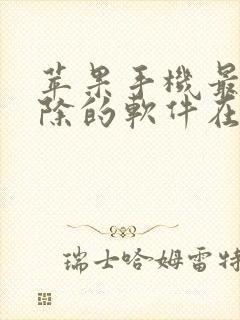 苹果手機最
除的軟件在
瑞士哈姆雷特